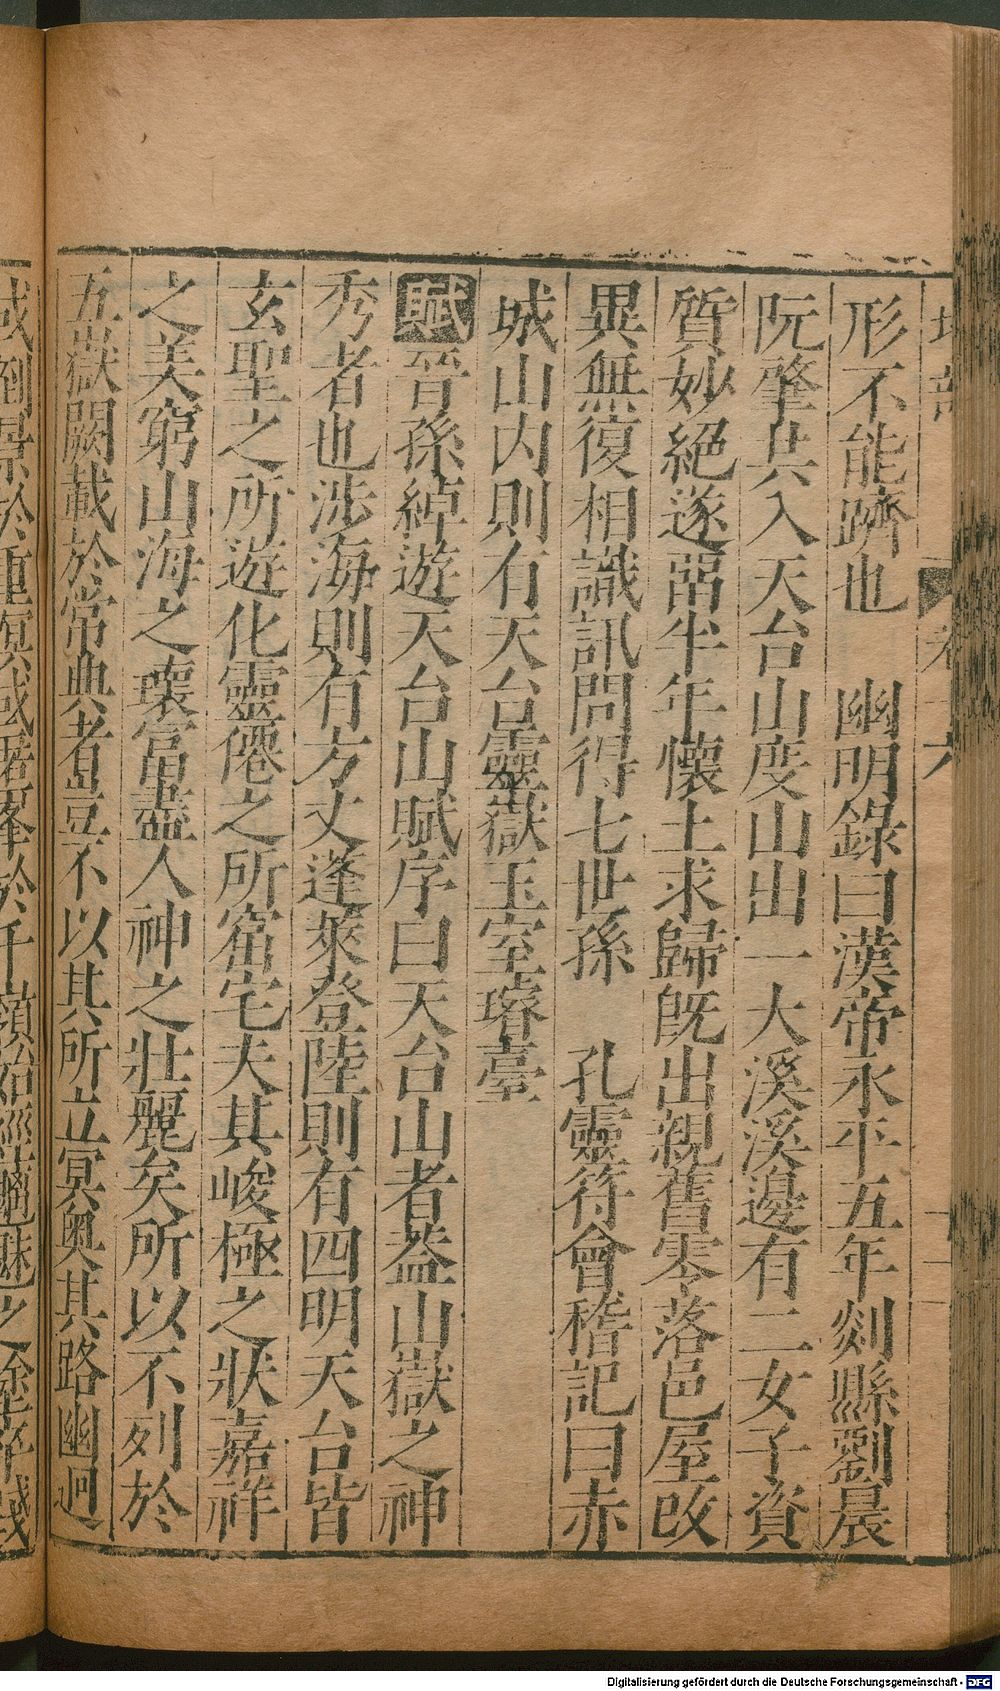 形不能躋也　幽明錄曰漢帝永平五年剡縣劉晨
阮肇共入天台山度山出一大溪溪邊有二女子資
質妙絕遂畱半年懷土求歸旣出親舊零落邑屋改
異無復相識訊問得七世孫　孔靈符會稽記曰赤
城山内則有天台靈嶽玉室璿臺
賦晉孫綽遊天台山賦序曰天台山者葢山嶽之神
秀者也涉海則有方丈蓬萊登陸則有四明天台皆
玄聖之所遊化靈僊之所窟宅夫其峻極之狀嘉祥
之美窮山海之瓌富盡人神之壯麗矣所以不列於
五嶽闕載於常典者豈不以其所立冥奥其路幽迥
或倒景於重溟或匿峯於千嶺始經魑魅之塗卒踐
Digitalisierung gefördert durch die Deutsche Forschungsgemeinschaft - DFG